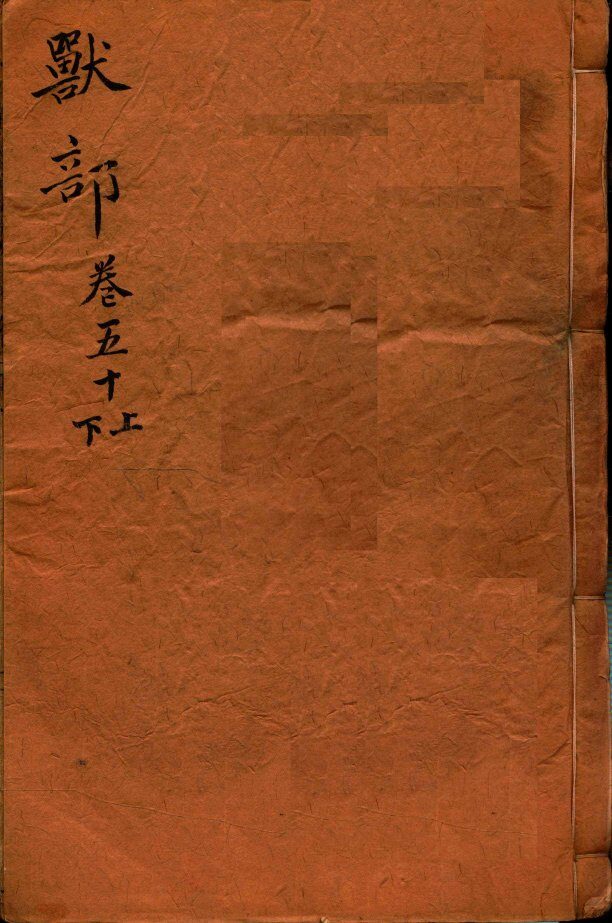 獸部
卷五十上下